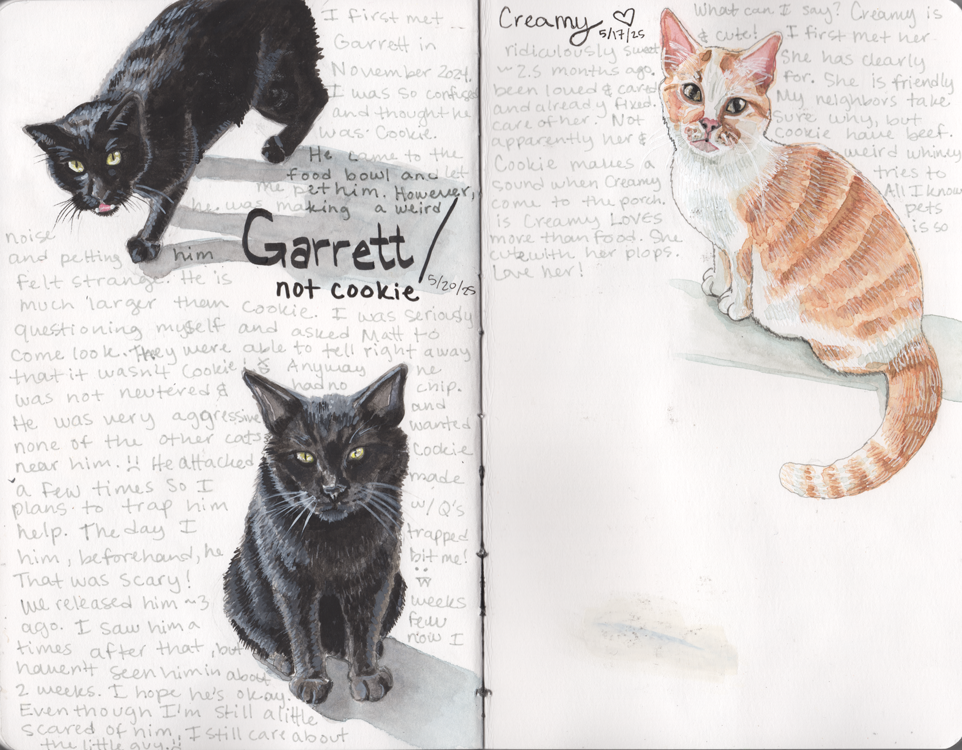 I first met
Garrett in
November 2024.
I was so confused
and thought he
was Cookie.
He came to the
food bowl and let
me pet him. However,
he was making a weird
Garrett/
not cookie
5/20/25
noise
and petting him
felt strange. He is
much larger than Cookie. I was seriously
questioning myself and asked Matt to
come look. They were able to tell right away
that it wasn't Cookie. Anyway he
was not neutered & had no chip.
He was very aggressive and
none of the other cats wanted
near him. He attacked Cookie
a few times so I made
plans to trap him w/Q's
help. The day I trapped
him, beforehand, he bit me!
That was scary!
We released him ~3 weeks
ago. I saw him a few
times after that, but now I
haven't seen him in about
2 weeks. I hope he's okay.
Even though I'm still a little
scared of him, I still care about
the little guy.
Creamy ♡
5/17/25
What can I say? Creamy is
ridiculously sweet & cute! I first met her
~2.5 months ago. She has clearly
been loved & cared for. She is friendly
and already fixed. My neighbors take
care of her. Not sure why, but
apparently her & Cookie have beef.
Cookie makes a weird whiney
sound when Creamy tries to
come to the porch. All I know
is Creamy LOVES pets
more than food. She is so
cute with her plops.
Love her!